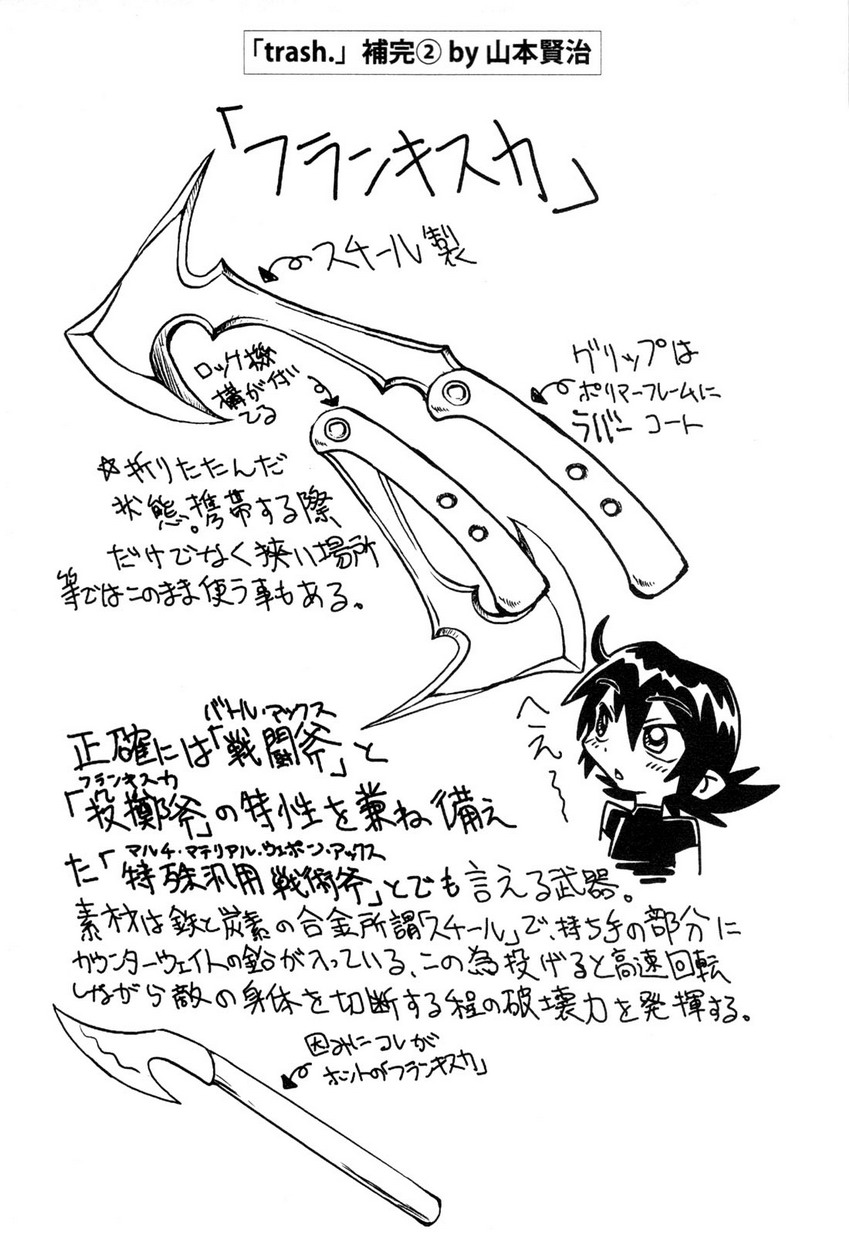 「trash.」補完② by 山本賢治
「フランキスカ」
スチール製
グリップは
ポリマーフレームに
ラバーコート
ロック機
構が付い
てる
☆折りたたんだ
状態。携帯する際
だけでなく狭い場所
等ではこのまま使う事もある。
へえ〜
バトル・アックス
正確には「戦闘斧」と
フランキスカ
「投擲斧」の特性を兼ね備え
マルチ・マテリアル・ウェポン・アックス
た「特殊汎用戦術斧」とでも言える武器。
素材は鉄と炭素の合金所謂「スチール」で、持ち手の部分に
カウンターウェイトの鉛が入っている、この為投げると高速回転
しながら敵の身体を切断する程の破壊力を発揮する。
因みにコレが
ホントの「フランキスカ」